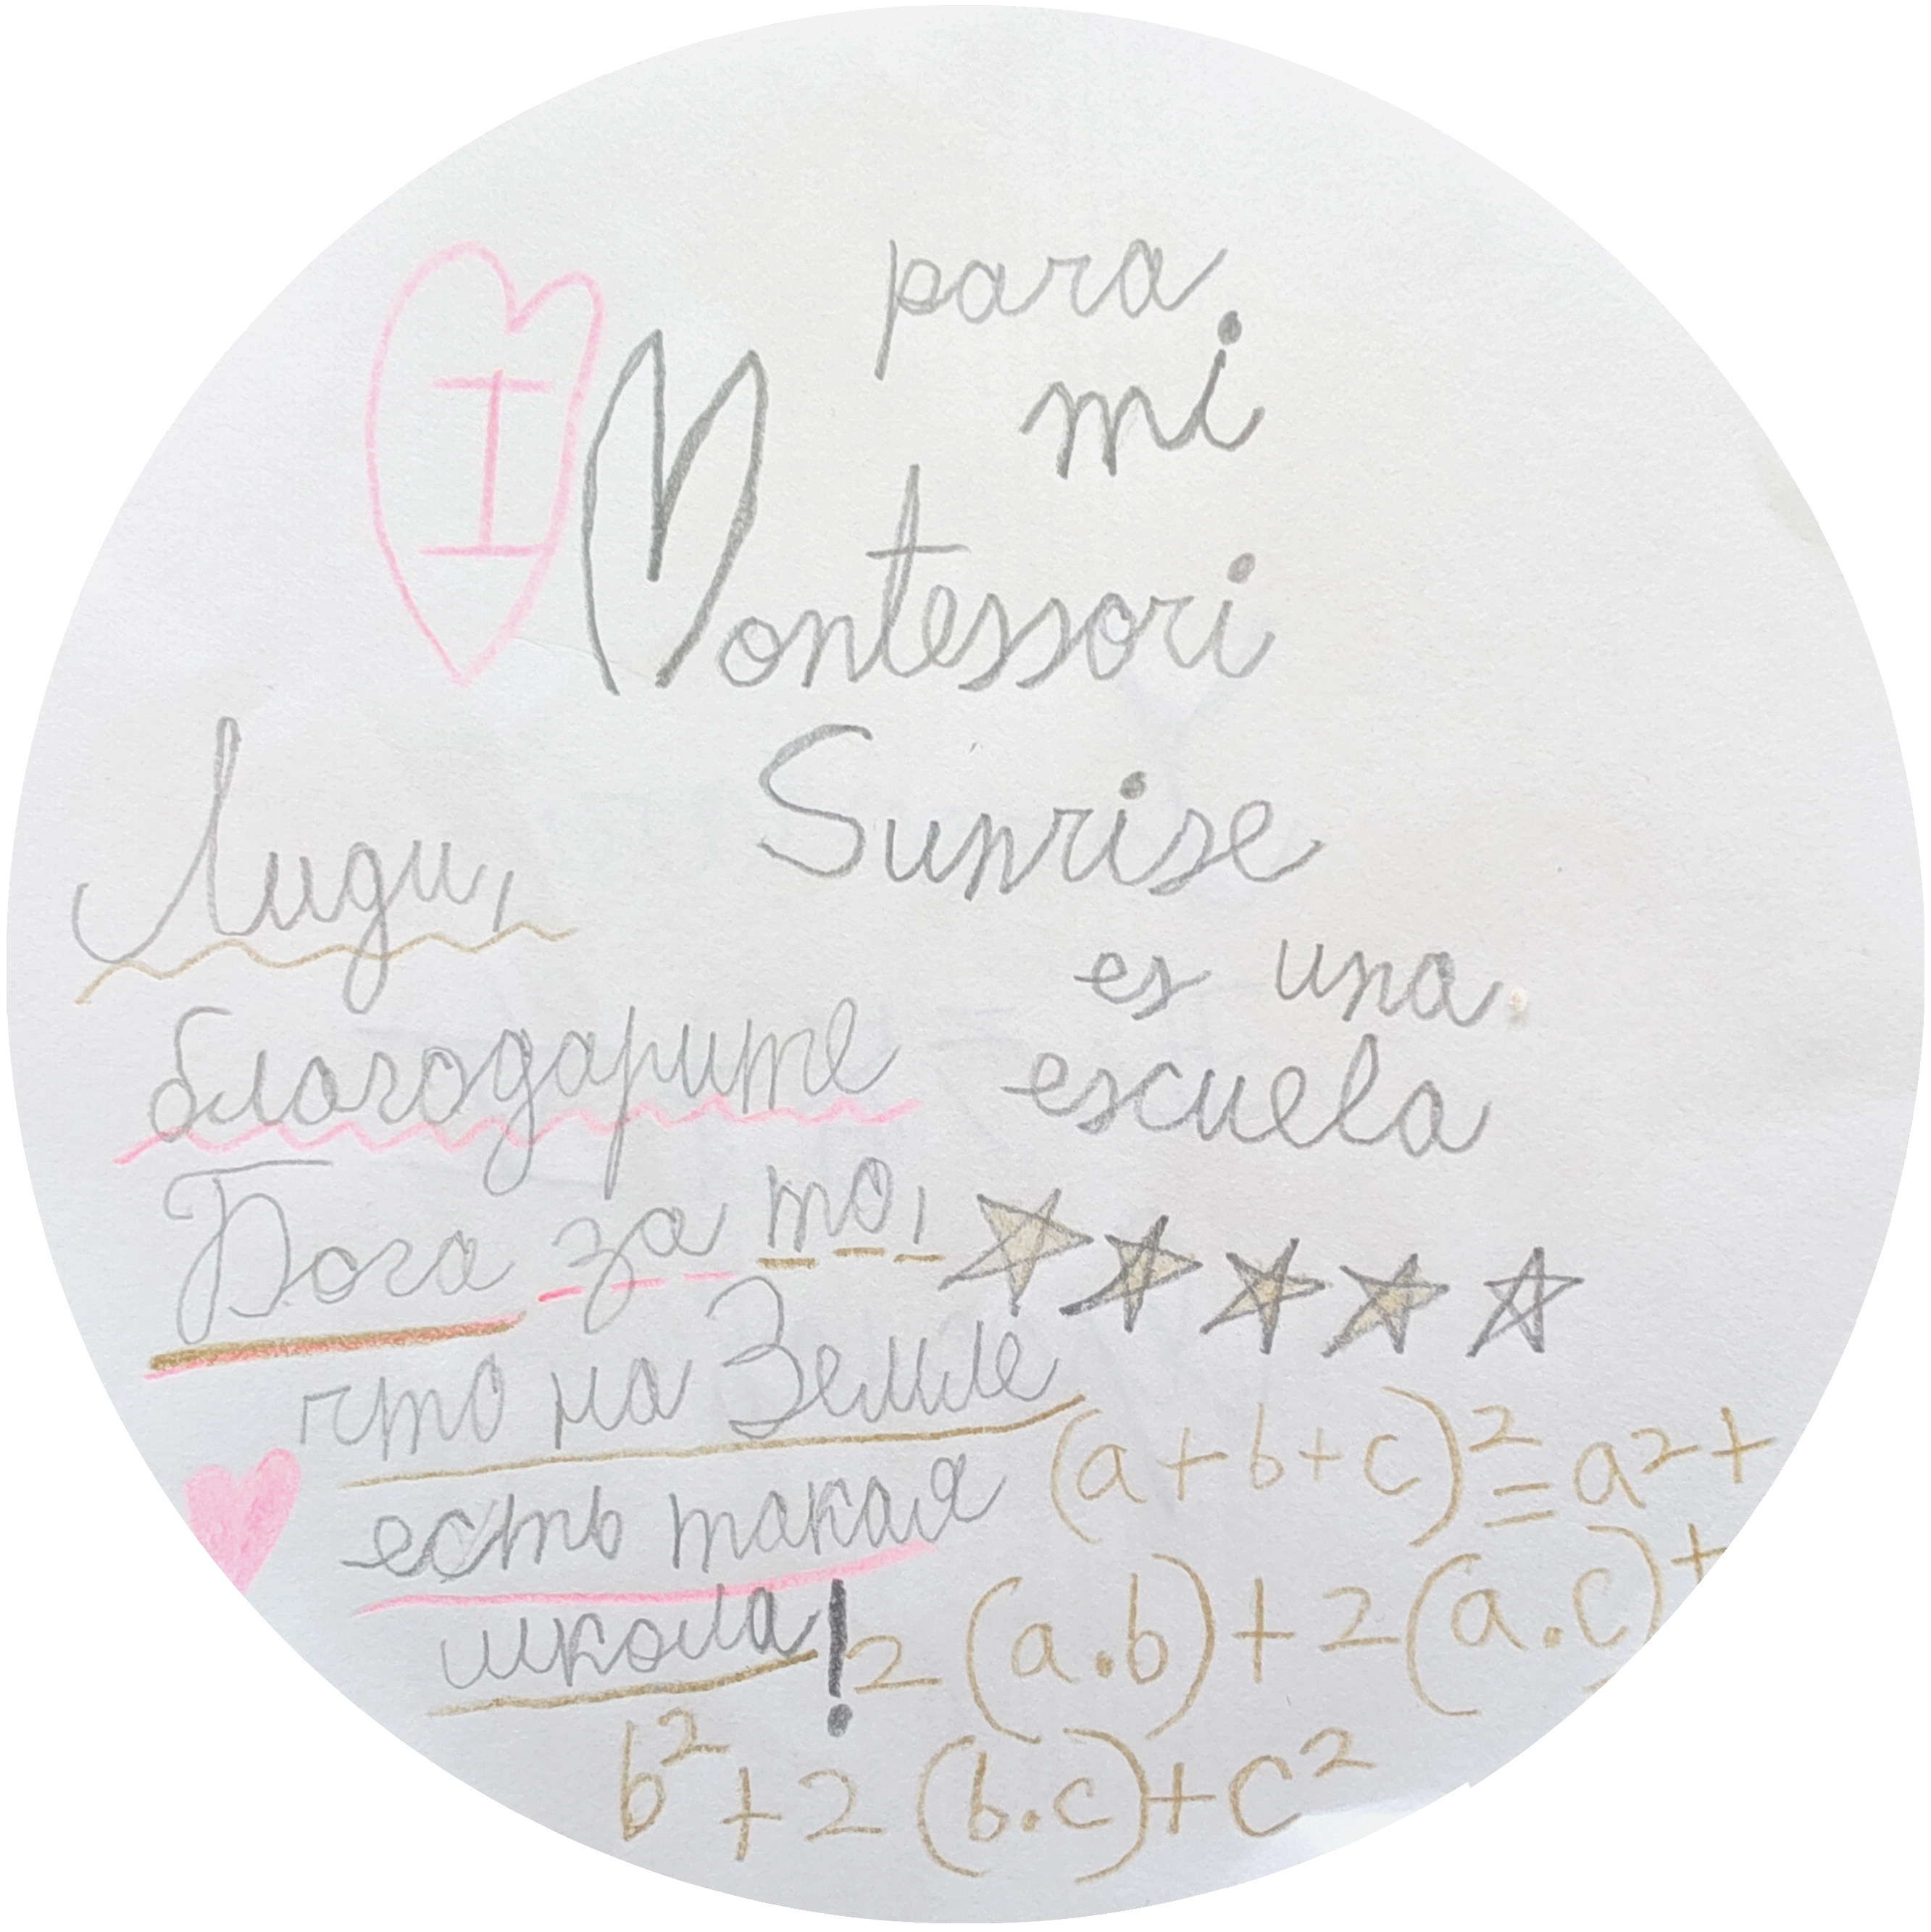 para
mi
I Montessori
Sunrise
es una
escuela
Лиди,
благодарите
Бога за то,
что на Земле
есть такая
школа!
(a+b+c)²=a²+
2(a.b)+2(a.c)+
b²+2(b.c)+c²